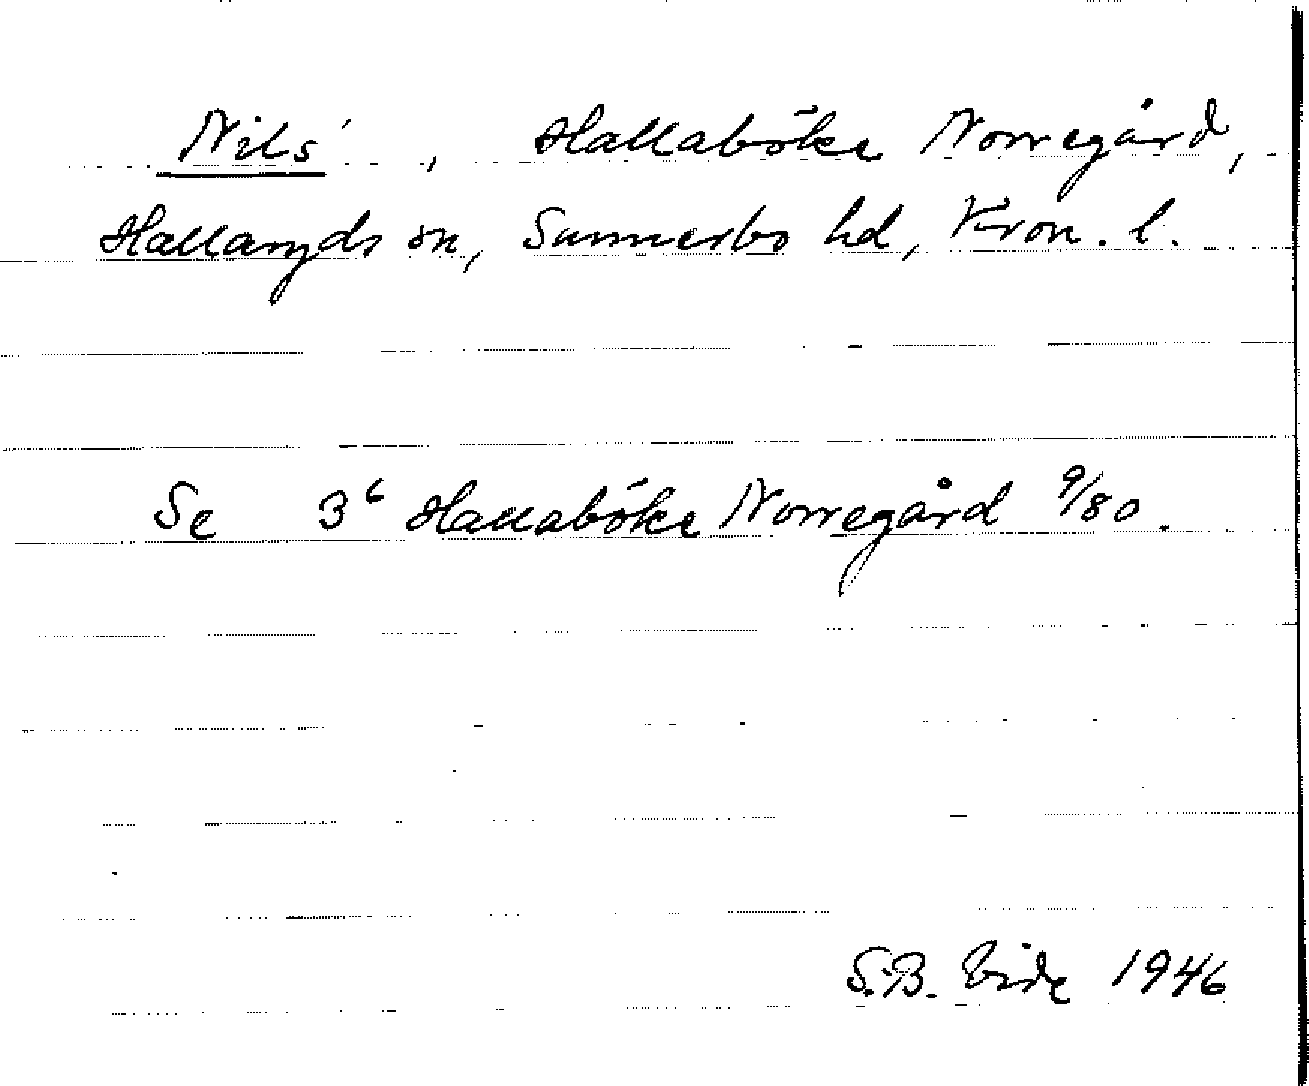 Nils', Hallaböke Norregård,
Hallaryds sn, Sunnerbo hd, Kron. l.
Se 3⁶ Hallaböke Norregård 9/80.
S.B. Vide 1946